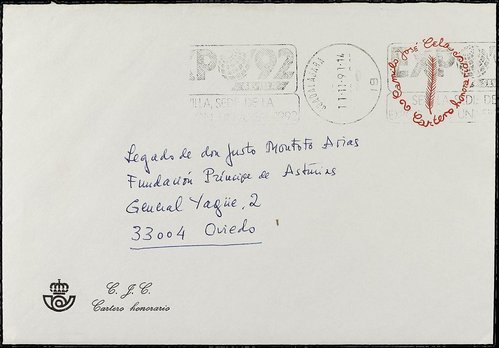 EXPO'92
GUADALAJARA
11-12-91-14
19
Camilo José Cela
Cartero honorario
EXPO
SEVILLA, SEDE DE LA
1992
SEDE DE
Legado de don Justo Montoto Arias
Fundación Príncipe de Asturias
General Yagüe, 2
33004 Oviedo
C. J. C.
Cartero honorario